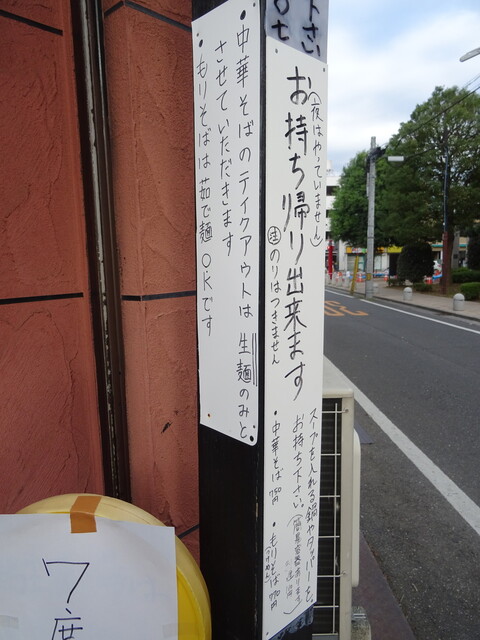 下さい
（夜はやっていません）
お持ち帰り出来ます
㊟のりはつきません
スープを入れる鍋やタッパーを、
お持ち下さい。
・中華そば 750円
・もりそば 770円
(つけめん)
・中華そばのテイクアウトは 生麺のみと
させていただきます
・もりそばは茹で麺OKです
7度